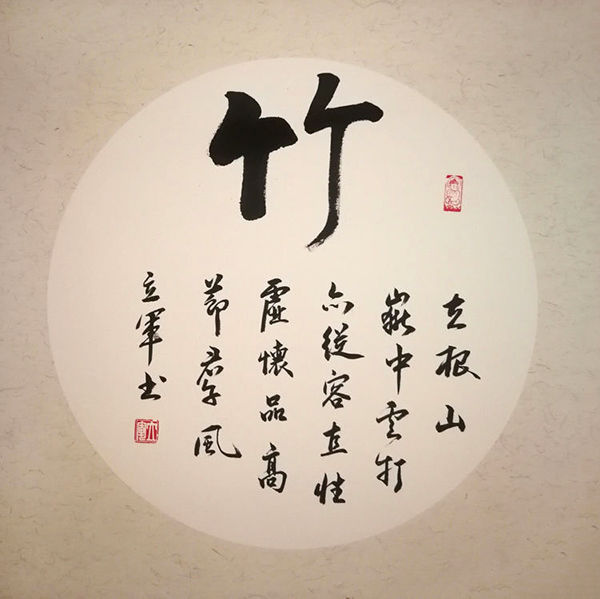 竹
立根山
巖中雪打
亦從容直性
虛懷品高
節君子風
立軍书